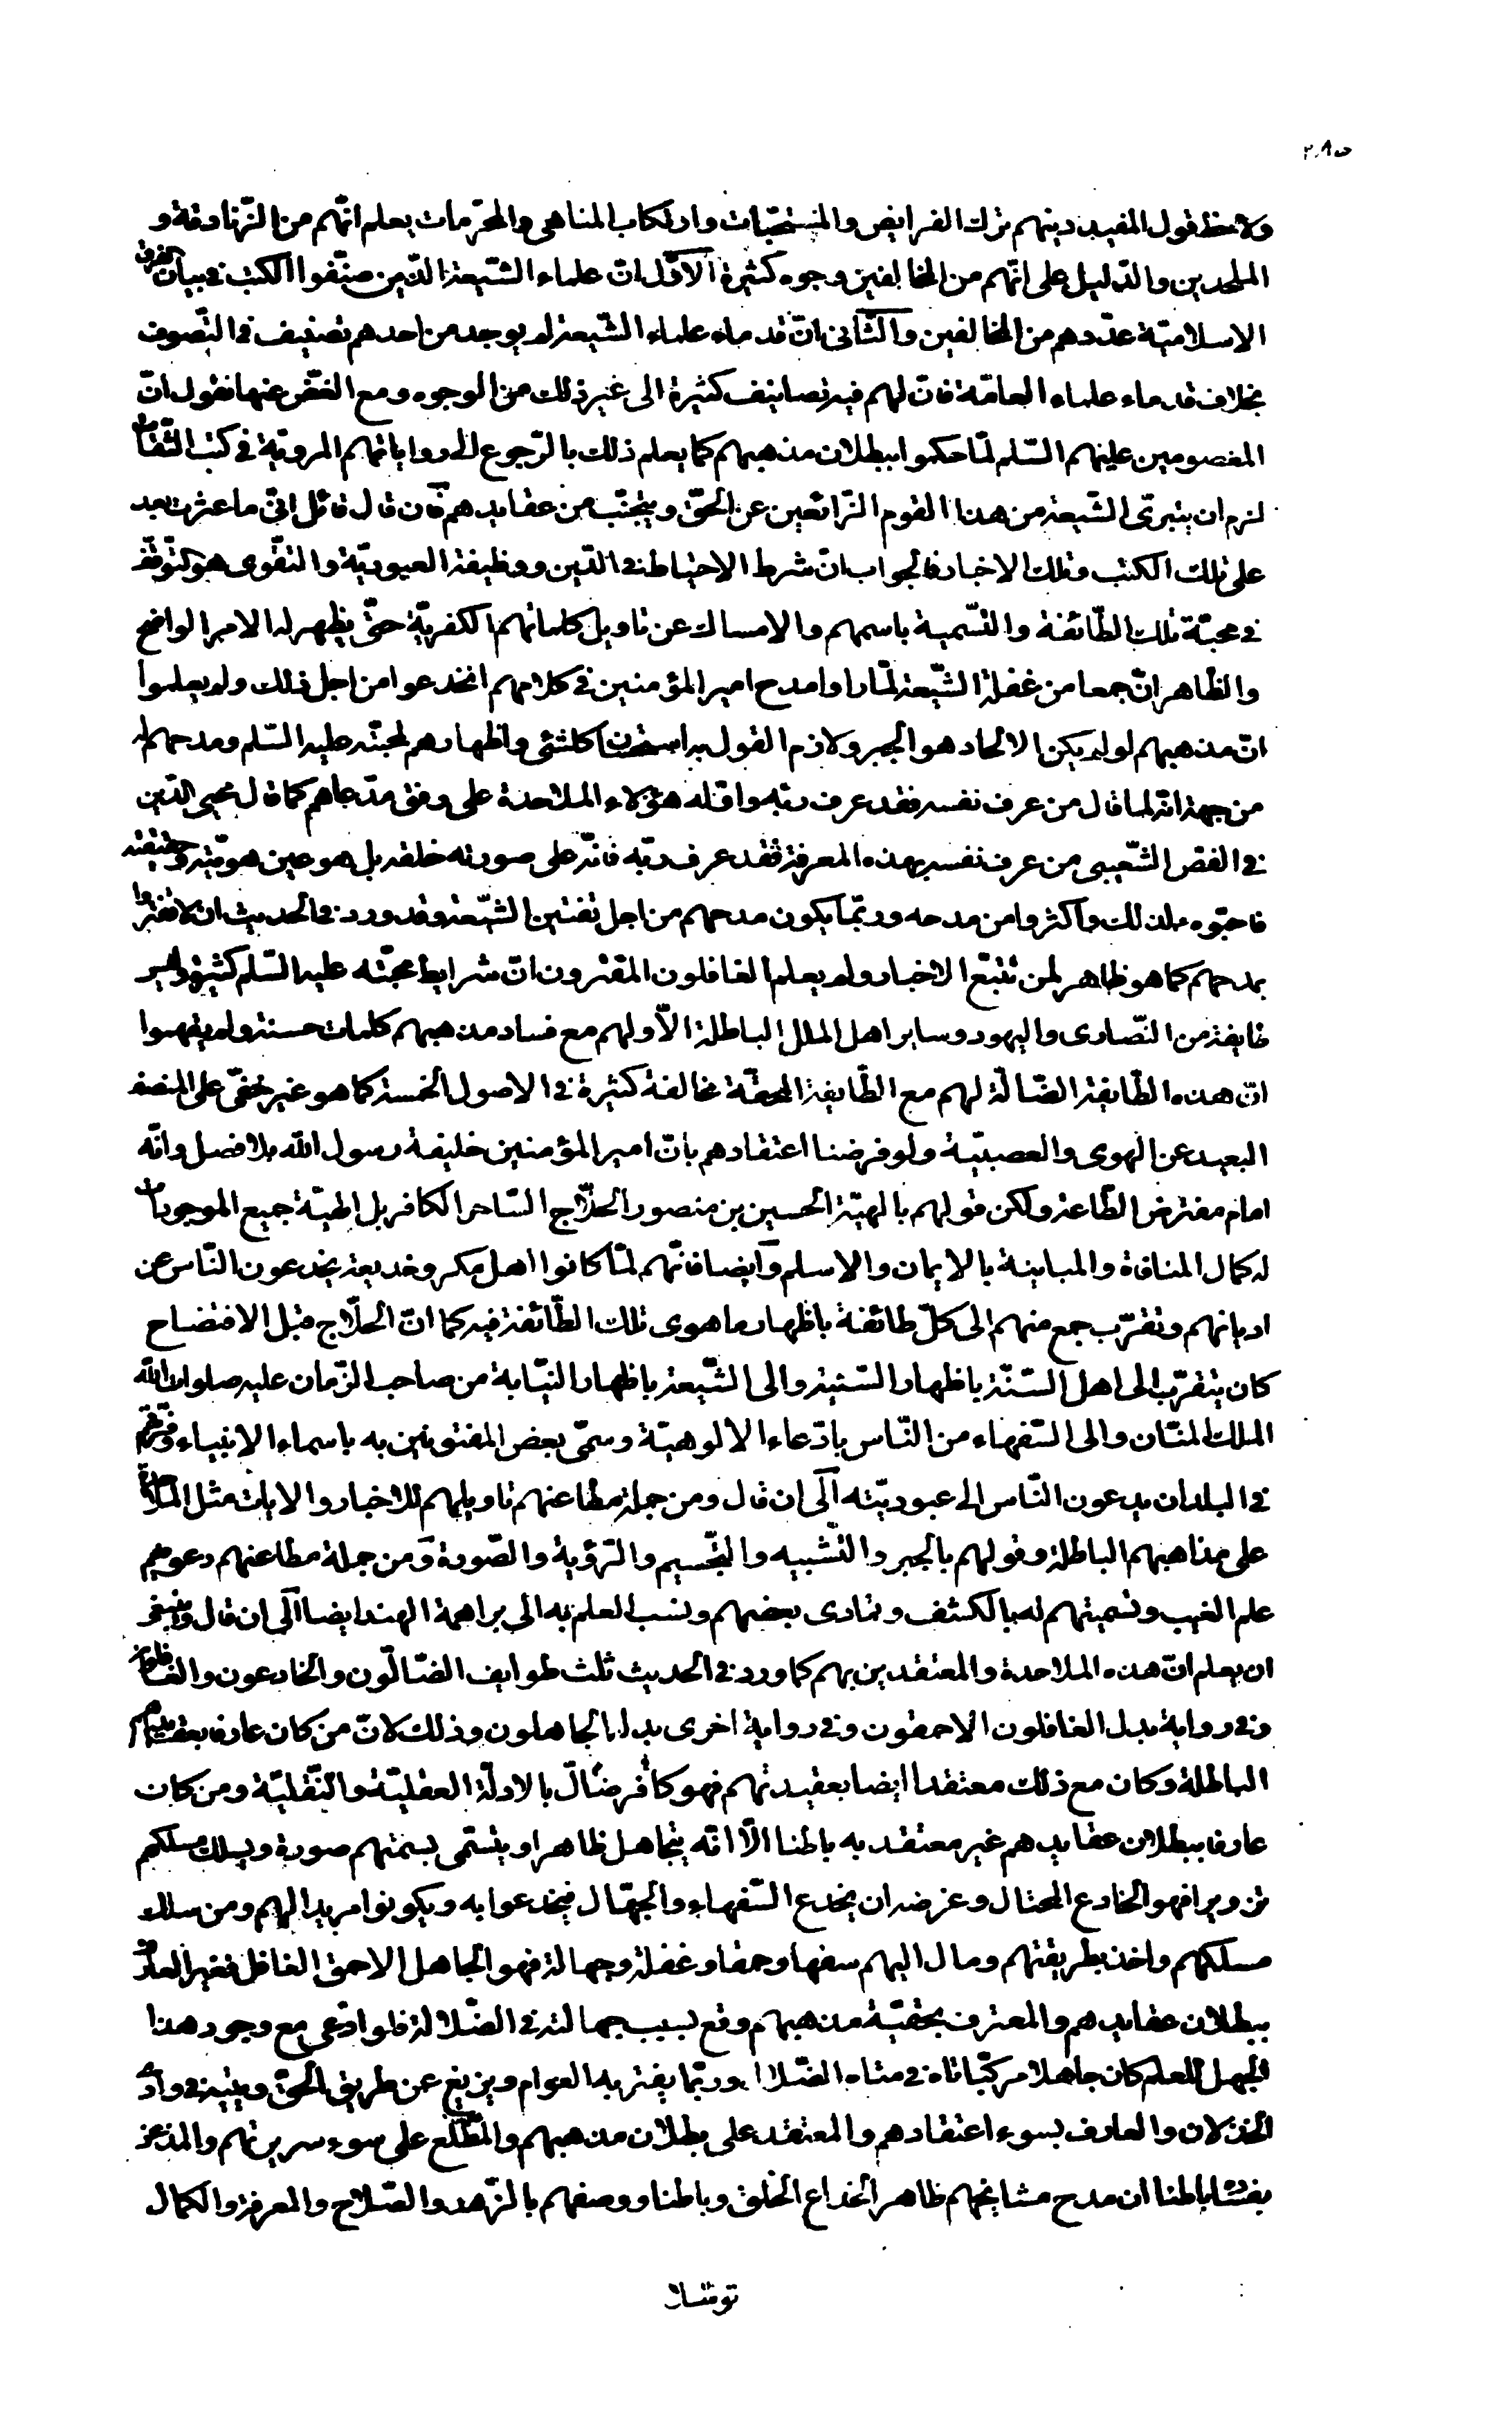 ص ٢٠٨
ولاحظ قول المفيد دينهم ترك الفرايض والمستحبّات وارتكاب المناهى والمحرّمات يعلم انّهم من الزّنادقة و
الملحدين والدّليل على انّهم من المخالفين وجوه كثيرة الاوّل انّ علماء الشّيعة الذّين صنّفوا الكتب فى بيان الفرق
الاسلاميّة عدّدهم من المخالفين والثّانى انّ قدماء علماء الشّيعة لم يوجد من احدهم تصنيف فى التّصوف
بخلاف قدماء علماء العامّة فانّ لهم فيه تصانيف كثيرة الى غير ذلك من الوجوه ومع الغضّ عنها فنقول انّ
المعصومين عليهم السّلم لمّا حكموا ببطلان مذهبهم كما يعلم ذلك بالرّجوع الى رواياتهم المرويّة فى كتب الثّقات
لزم ان يتبرّى الشّيعة من هذا القوم الزّائغين عن الحقّ ويتجنّب من عقايدهم فان قال قائل انّى ما عثرت بعد
على تلك الكتب وتلك الاخبار فالجواب انّ شرط الاحتياط فى الدّين ووظيفة العبوديّة والتقوى هو التّوقّف
فى محبّة تلك الطّائفة والتّسمية باسمهم والامساك عن تاويل كلماتهم الكفريّة حتّى يظهر له الامر الواضح
والظّاهر انّ جمعا من غفلة الشّيعة لمّا راوا مدح امير المؤمنين فى كلامهم انخدعوا من اجل ذلك ولم يعلموا
انّ مذهبهم لو لم يكن الالحاد هو الجبر ولازم القول به استحسان كلشئ واظهارهم لمحبّته عليه السّلم ومدحهم له
من جهة انّه لما قال من عرف نفسه فقد عرف ربّه واوّله هؤلاء الملاحدة على وفق مدّعاهم كما قال محيى الدّين
فى الفصّ الشّعيبى من عرف نفسه بهذه المعرفة فقد عرف ربّه فانّه على صورته خلقه بل هو عين هويّته وحقيقته
فاحبّوه لذلك واكثروا من مدحه وربّما يكون مدحهم من اجل تفتين الشّيعة وقد ورد فى الحديث ان لا تغترّوا
بمدحهم كما هو ظاهر لمن تتبّع الاخبار ولم يعلم الغافلون المغترون انّ شرايط محبّته عليه السّلم كثيرة وليس
طايفة من النّصارى واليهود وساير اهل الملل الباطلة الاّ ولهم مع فساد مذهبهم كلمات حسنة ولم يفهموا
انّ هذه الطّايفة الضّالّة لهم مع الطّايفة المحقّة مخالفة كثيرة فى الاصول الخمسة كما هو غير خفىّ على المنصف
البعيد عن الهوى والعصبيّة ولو فرضنا اعتقادهم بانّ امير المؤمنين خليفة رسول الله بلا فصل وانّه
امام مفترض الطّاعة ولكن قولهم بالهيّة الحسين بن منصور الحلّاج السّاحر الكافر بل الهيّة جميع الموجودات
له كمال المنافاة والمباينة بالايمان والاسلم وايضا فانّهم لمّا كانوا اهل مكر وخديعة يخدعون النّاس عن
اديانهم وتقرّب جمع منهم الى كلّ طائفة باظهار ما هوى تلك الطّائفة فيه كما انّ الحلّاج قبل الافتضاح
كان يتقرّب الى اهل السّنّة باظهار السّنّية والى الشّيعة باظهار النّيابة من صاحب الزّمان عليه صلوات الله
الملك المنّان والى السّفهاء من النّاس بادّعاء الالوهيّة وسمّى بعض المفتونين به باسماء الانبياء وفرّقهم
فى البلدان يدعون النّاس الى عبوديّته الى ان قال ومن جملة مطاعنهم تاويلهم للاخبار والايات مثل الملاحدة
على مذاهبهم الباطلة وقولهم بالجبر والتّشبيه والتّجسيم والرّؤية والصّورة ومن جملة مطاعنهم دعويهم
علم الغيب وتسميتهم له بالكشف وتمادى بعضهم ونسب العلم به الى براهمة الهند ايضا الى ان قال وينبغى
ان يعلم انّ هذه الملاحدة والمعتقدين بهم كما ورد فى الحديث ثلث طوايف الضّالّون والخادعون والغافلون
وفى رواية بدل الغافلون الاحمقون وفى رواية اخرى بدله الجاهلون وذلك لانّ من كان عارفا بعقايدهم
الباطلة وكان مع ذلك معتقدا ايضا بعقيدتهم فهو كافر ضالّ بالادلّة العقليّة والنّقليّة ومن كان
عارفا ببطلان عقايدهم غير معتقد به باطنا الاّ انّه يتجاهل ظاهرا ويتسمّى بسمتهم صورة ويسلك مسلكهم
تزويرا فهو الخادع المحتال وغرضه ان يخدع السّفهاء والجهّال فيخدعوا به ويكونوا مريدا لهم ومن سلك
مسلكهم واخذ بطريقتهم ومال اليهم سفها وحمقا وغفلة وجهالة فهو الجاهل الاحمق الغافل فغير العارف
ببطلان عقايدهم والمعترف بحقيّة مذهبهم وقع بسبب جهالته فى الضّلالة فلو ادّعى مع وجود هذا
الجهل العلم كان جاهلا مركّبا تاه فى متاه الضّلال وربّما يغتر به العوام ويزيغ عن طريق الحقّ ويتيه فى وادى
الخذلان والعارف بسوء اعتقادهم والمعتقد على بطلان مذهبهم والمطّلع على سوء سريرتهم والمذعن
باطنا ان مدح مشايخهم ظاهرا لخداع الخلق وباطنا ووصفهم بالزّهد والصّلاح والمعرفة والكمال
توسّلا